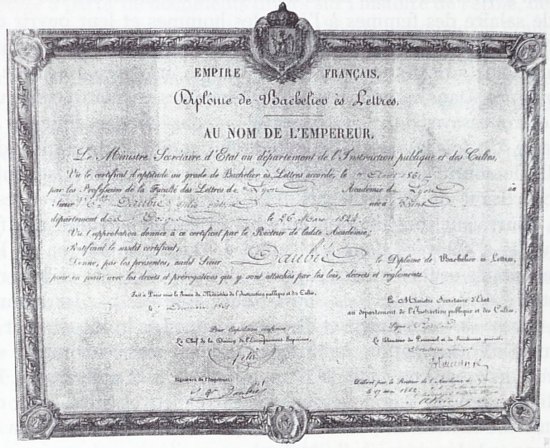 EMPIRE FRANÇAIS.
Diplôme de Bachelier ès Lettres.
AU NOM DE L'EMPEREUR,
Le Ministre Secrétaire d'État au département de l'Instruction publique et des Cultes,
Vu le certificat d'aptitude au grade de Bachelier ès Lettres accordé, le
par les Professeurs de la Faculté des Lettres de Lyon Académie de Lyon à
Sieur Daubié
département des Vosges le 26 Mars 1824
Vu l'approbation donnée à ce certificat par le Recteur de ladite Académie;
Ratifiant le susdit certificat;
Donne, par les présentes, audit Sieur Daubié le Diplôme de Bachelier ès Lettres,
pour en jouir avec les droits et prérogatives qui y sont attachés par les lois, décrets et règlements.
Fait à Paris sous le sceau du Ministère de l'Instruction publique et des Cultes.
Le Ministre Secrétaire d'État
au département de l'Instruction publique et des Cultes,
Pour Expédition conforme
Le Chef de la Division de l'Enseignement Supérieur,
Signature de l'Impétrant
Daubié
Délivré par le Recteur de l'Académie de